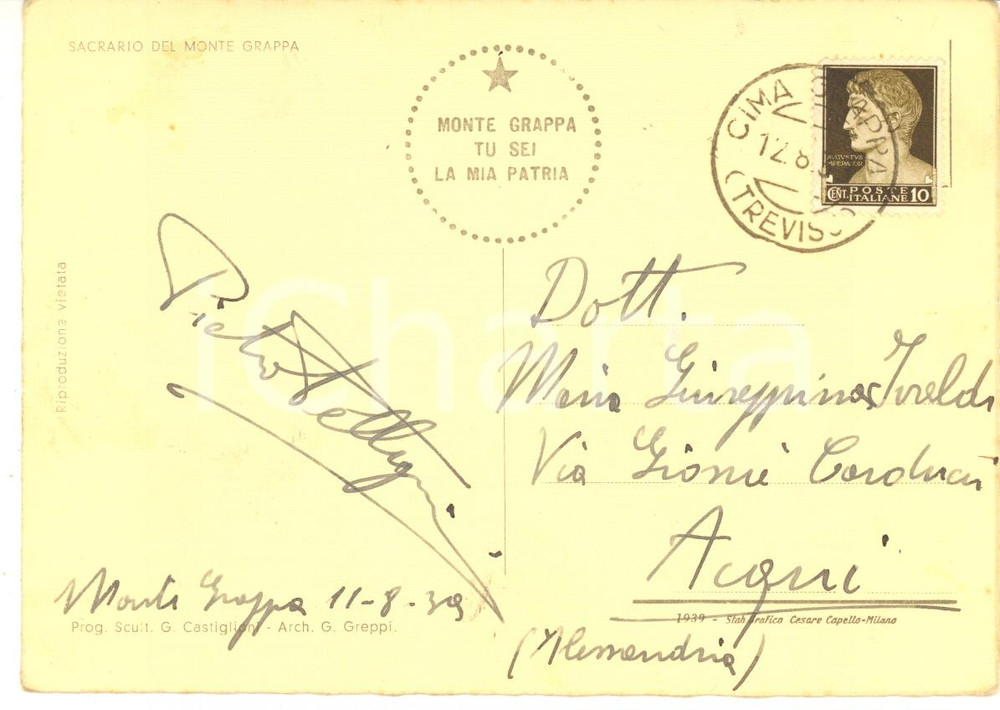 SACRARIO DEL MONTE GRAPPA
MONTE GRAPPA
TU SEI
LA MIA PATRIA
CIMA GRAPPA
12.8.
(TREVISO)
AVGVSTVS
IMPERATOR
CENT. POSTE ITALIANE 10
Riproduzione vietata
iCharta
Pietro
Dott.
Maria Giuseppina Ivaldi
Via Giosuè Carducci
Acqui
(Alessandria)
Monte Grappa 11-8-39
Prog. Scult. G. Castiglioni - Arch. G. Greppi.
1939 - Stab Grafico Cesare Capello-Milano